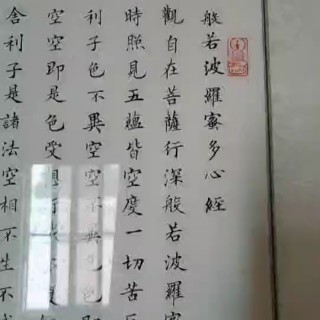 般若波羅蜜多心經
觀自在菩薩行深般若波羅蜜
時照見五蘊皆空度一切苦厄
利子色不異空空不異色色即
空空即是色受想行識亦復如
舍利子是諸法空相不生不